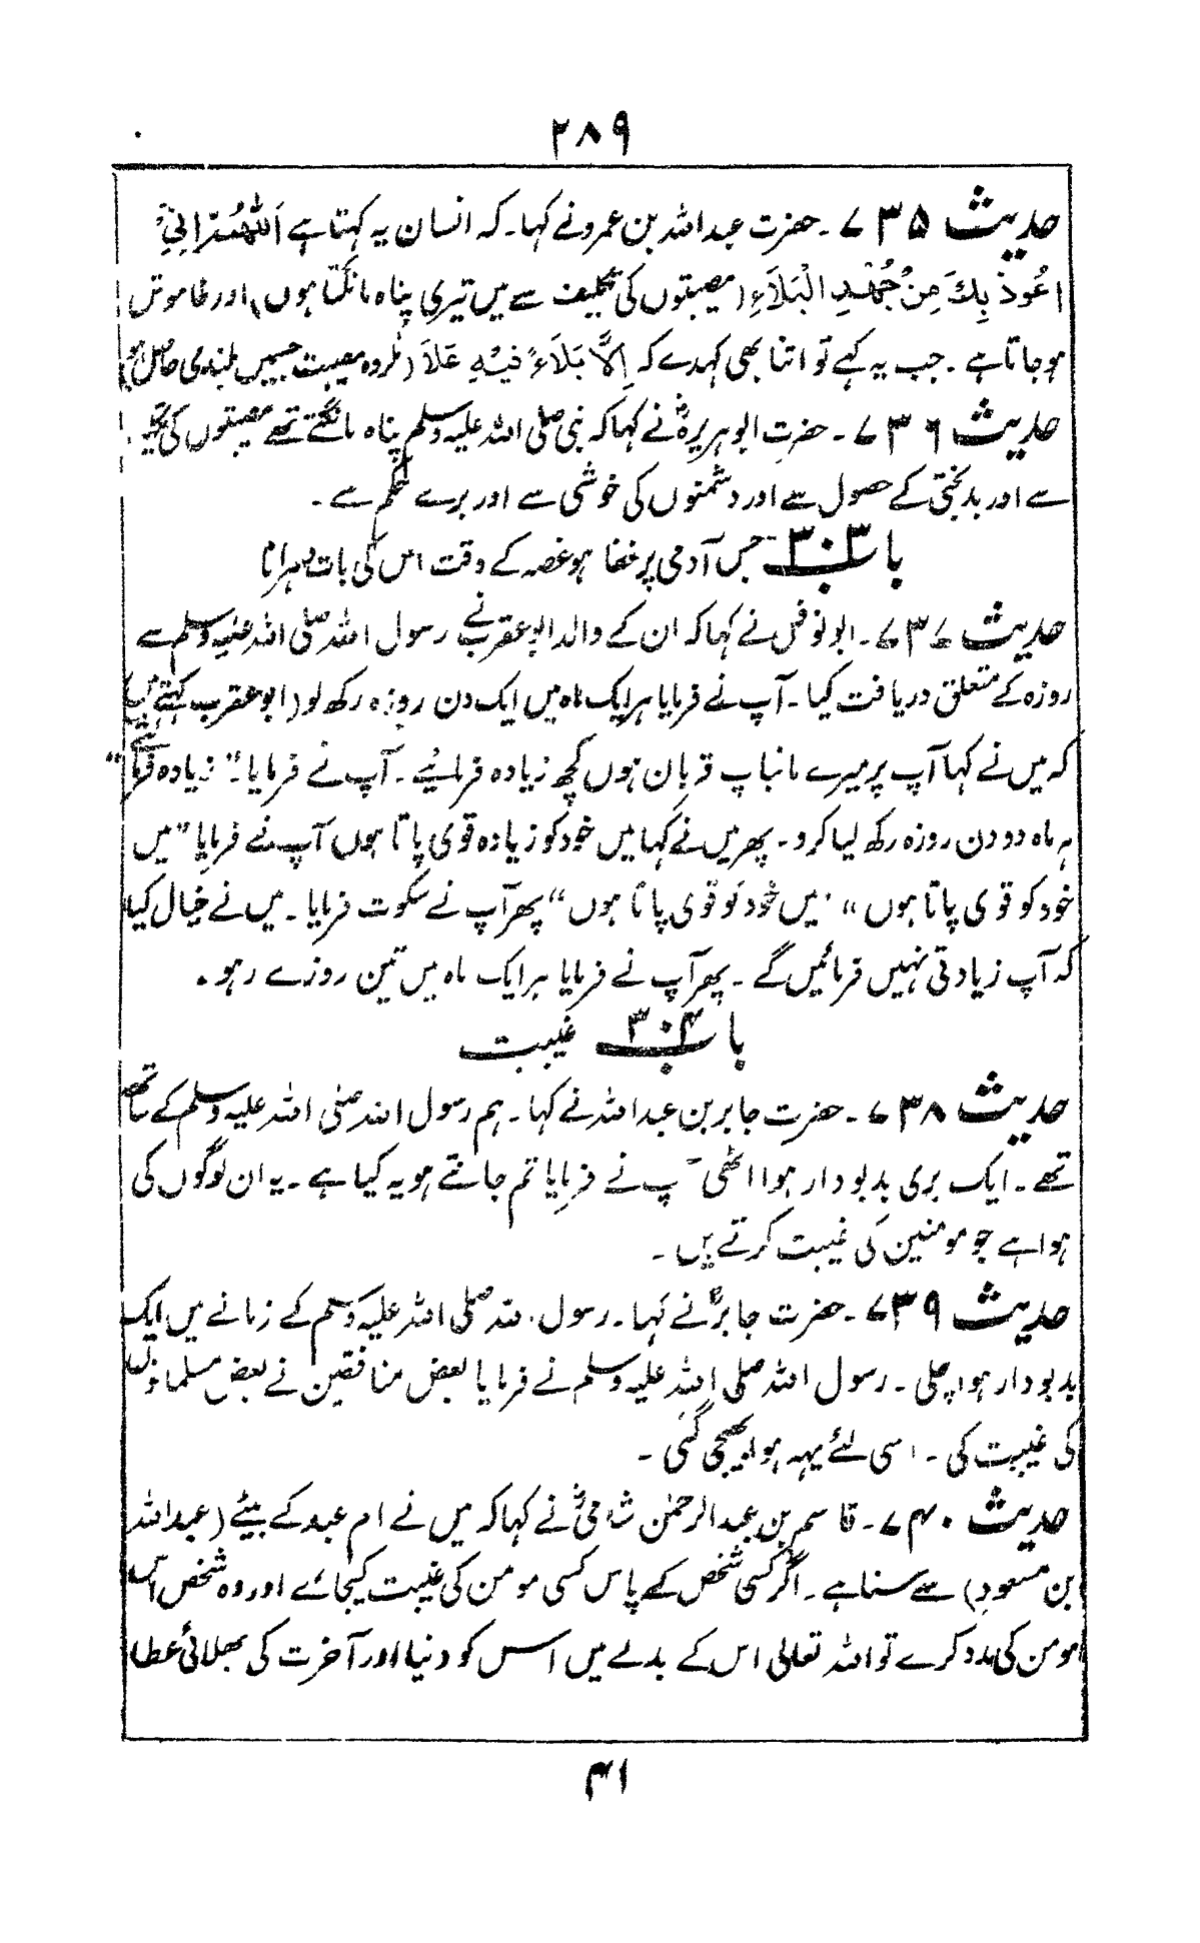 ۲۸۹
حدیث ۷۳۵ ۔ حضرت عبداللہ بن عمرو نے کہا۔ کہ انسان یہ کہتا ہے اَللّٰهُمَّ اِنِّیْ
اَعُوْذُ بِكَ مِنْ جُهْدِ الْبَلَاءِ (مصیبتوں کی تکلیف سے میں تیری پناہ مانگتا ہوں) اور خاموش
ہوجاتا ہے ۔ جب یہ کہے تو اتنا بھی کہدے کہ اِلَّا بَلَاءً فِیْهِ عَلَا (مگر وہ مصیبت جسمیں بلندی حاصل ہو)
حدیث ۷۳۶ ۔ حضرت ابوہریرہؓ نے کہا کہ نبی صلی اللہ علیہ وسلم پناہ مانگتے تھے مصیبتوں کی
سے اور بدبختی کے حصول سے اور دشمنوں کی خوشی سے اور برے حکم سے ۔
باب ۳۰۳ جس آدمی پر خفا ہو غصہ کے وقت اس کی بات دہرانا
حدیث ۷۳۷ ۔ ابو نوفل نے کہا کہ ان کے والد ابو عقرب نے رسول اللہ صلی اللہ علیہ وسلم سے
روزہ کے متعلق دریافت کیا ۔ آپ نے فرمایا ہر ایک ماہ میں ایک دن روزہ رکھ لو (ابو عقرب کہتے ہیں
کہ میں نے کہا آپ پر میرے مانباپ قربان ہوں کچھ زیادہ فرمائیے ۔ آپ نے فرمایا۔ "زیادہ فرمائیے"
ہر ماہ دو دن روزہ رکھ لیا کرو ۔ پھر میں نے کہا میں خود کو زیادہ قوی پاتا ہوں آپ نے فرمایا "میں
خود کو قوی پاتا ہوں" "میں خود کو قوی پاتا ہوں" پھر آپ نے سکوت فرمایا ۔ میں نے خیال کیا
کہ آپ زیادتی نہیں فرمائیں گے ۔ پھر آپ نے فرمایا ہر ایک ماہ میں تین روزے رہو ۔
باب ۳۰۴ غیبت
حدیث ۷۳۸ ۔ حضرت جابر بن عبداللہ نے کہا ۔ ہم رسول اللہ صلی اللہ علیہ وسلم کے ساتھ
تھے ۔ ایک بری بدبودار ہوا اٹھی آپ نے فرمایا تم جانتے ہو یہ کیا ہے ۔ یہ ان لوگوں کی
ہوا ہے جو مومنین کی غیبت کرتے ہیں ۔
حدیث ۷۳۹ ۔ حضرت جابرؓ نے کہا ۔ رسول اللہ صلی اللہ علیہ وسلم کے زمانے میں ایک
بدبودار ہوا چلی ۔ رسول اللہ صلی اللہ علیہ وسلم نے فرمایا بعض منافقین نے بعض مسلمانوں
کی غیبت کی ۔ اسی لئے یہہ ہوا بھیجی گئی ۔
حدیث ۷۴۰ ۔ قاسم بن عبدالرحمٰن شامیؒ نے کہا کہ میں نے ام عبد کے بیٹے (عبداللہ
بن مسعود) سے سنا ہے ۔ اگر کسی شخص کے پاس کسی مومن کی غیبت کیجائے اور وہ شخص اس
مومن کی مدد کرے تو اللہ تعالی اس کے بدلے میں اسس کو دنیا اور آخرت کی بھلائی عطا
۴۱